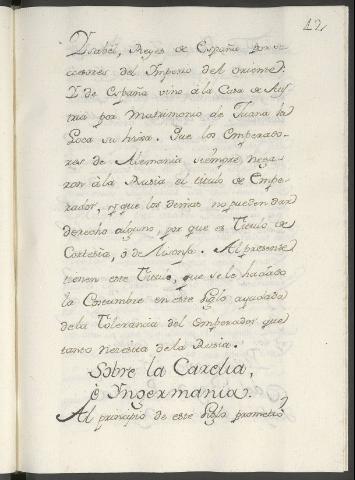 12,
Ysabél, Reyes de España por su-
cciones del Imperio del oriente.
Y de España vino â la Casa de Aus-
tria por Matrimonio de Juana la
Loca su hixa. Que los Emperado-
res de Alemania siempre nega-
ron â la Rusia el titulo de Empe-
rador, y que los demas no pueden dar
derecho alguno, por que es Titulo de
Cortesia, ó de Lisonja. Al presente
tienen este Titulo, que se le ha dado
la Costumbre en este Siglo ayudada
de la Tolerancia del Emperador que
tanto necesita de la Rusia.
Sobre la Carelia,
è Ingermania.
Al principio de este Siglo prometió